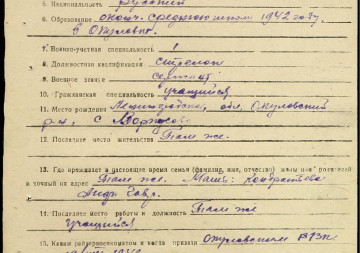 5. Национальность русский
6. Образование оконч. среднюю школу 1942 году
в Окуловке.
7. Военно-учетная специальность
8. Должностная квалификация стрелок
9. Военное звание сержант
10. Гражданская специальность учащийся
11. Место рождения обл. Окуловский
р-н, с
12. Последнее место жительства Там же.
13. Где проживает в настоящее время семья (фамилия, имя, отчество) жены или родителей
и точный их адрес Там же. Мать: Кондратьева
14. Последнее место работы и должность Там же
учащийся
15. Каким райвоенкоматом и места призван Окуловским РВК